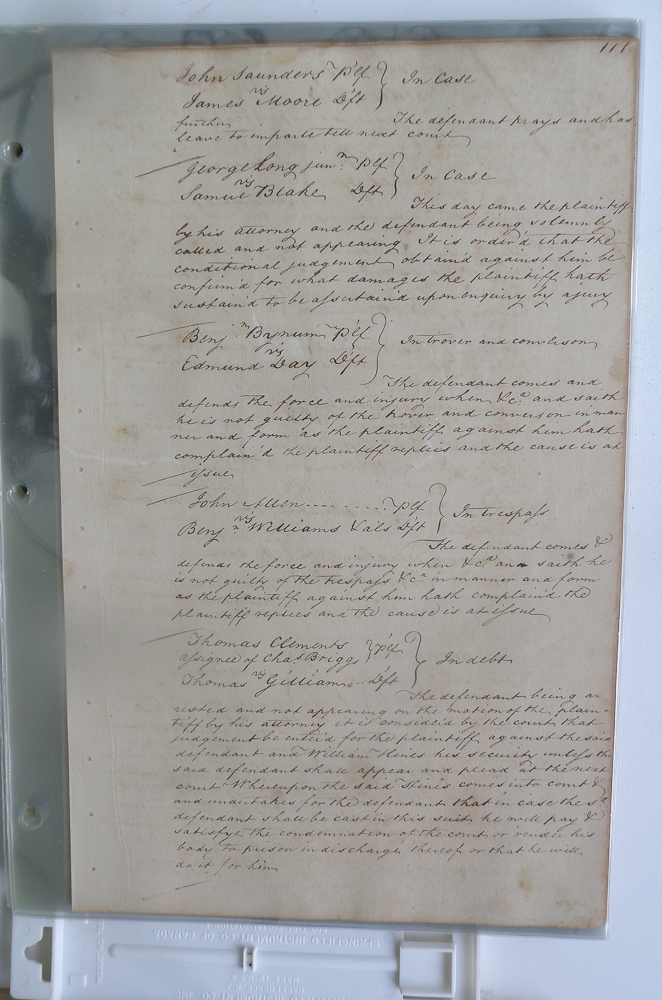 111
John Saunders Plf } In Case
vs
James Moore Dft
The defendant prays and has
further
leave to imparle till next court
George Long jun.r Plf } In Case
vs
Samuel Blake Dft
This day came the plaintiff
by his attorney and the defendant being solemnly
called and not appearing It is order'd that the
conditional judgement obtain'd against him be
confirm'd for what damages the plaintiff hath
sustain'd to be assertain'd upon enquiry by a jury
Benj.n Bynum Plf } In trover and conversion
vs
Edmund Day Dft
The defendant comes and
defends the force and injury when &c.a and saith
he is not guilty of the trover and conversion in man
ner and form as the plaintiff against him hath
complain'd the plaintiff replies and the cause is at
issue
John Allen .......... Plf } In trespass
vs
Benj.n Williams & als Dft
The defendant comes &
defends the force and injury when &c.a and saith he
is not guilty of the trespass &c.a in manner and form
as the plaintiff against him hath complain'd the
plaintiff replies and the cause is at issue
Thomas Clements } Plf } In debt
assignee of Cha.s Briggs
vs
Thomas Gilliam .. Dft
The defendant being ar
rested and not appearing on the motion of the plain-
tiff by his attorney it is consider'd by the court that
judgement be enter'd for the plaintiff against the said
defendant and William Hines his security unless the
said defendant shall appear and plead at the next
court Whereupon the said Hines comes into court &
and undertakes for the defendant that in case the s.d
defendant shall be cast in this suit he will pay &
satisfye the condemnation of the court or render his
body to prison in discharge thereof or that he will
do it for him
SPRINGFIELD INSTRUMENT CO. OF CANADA